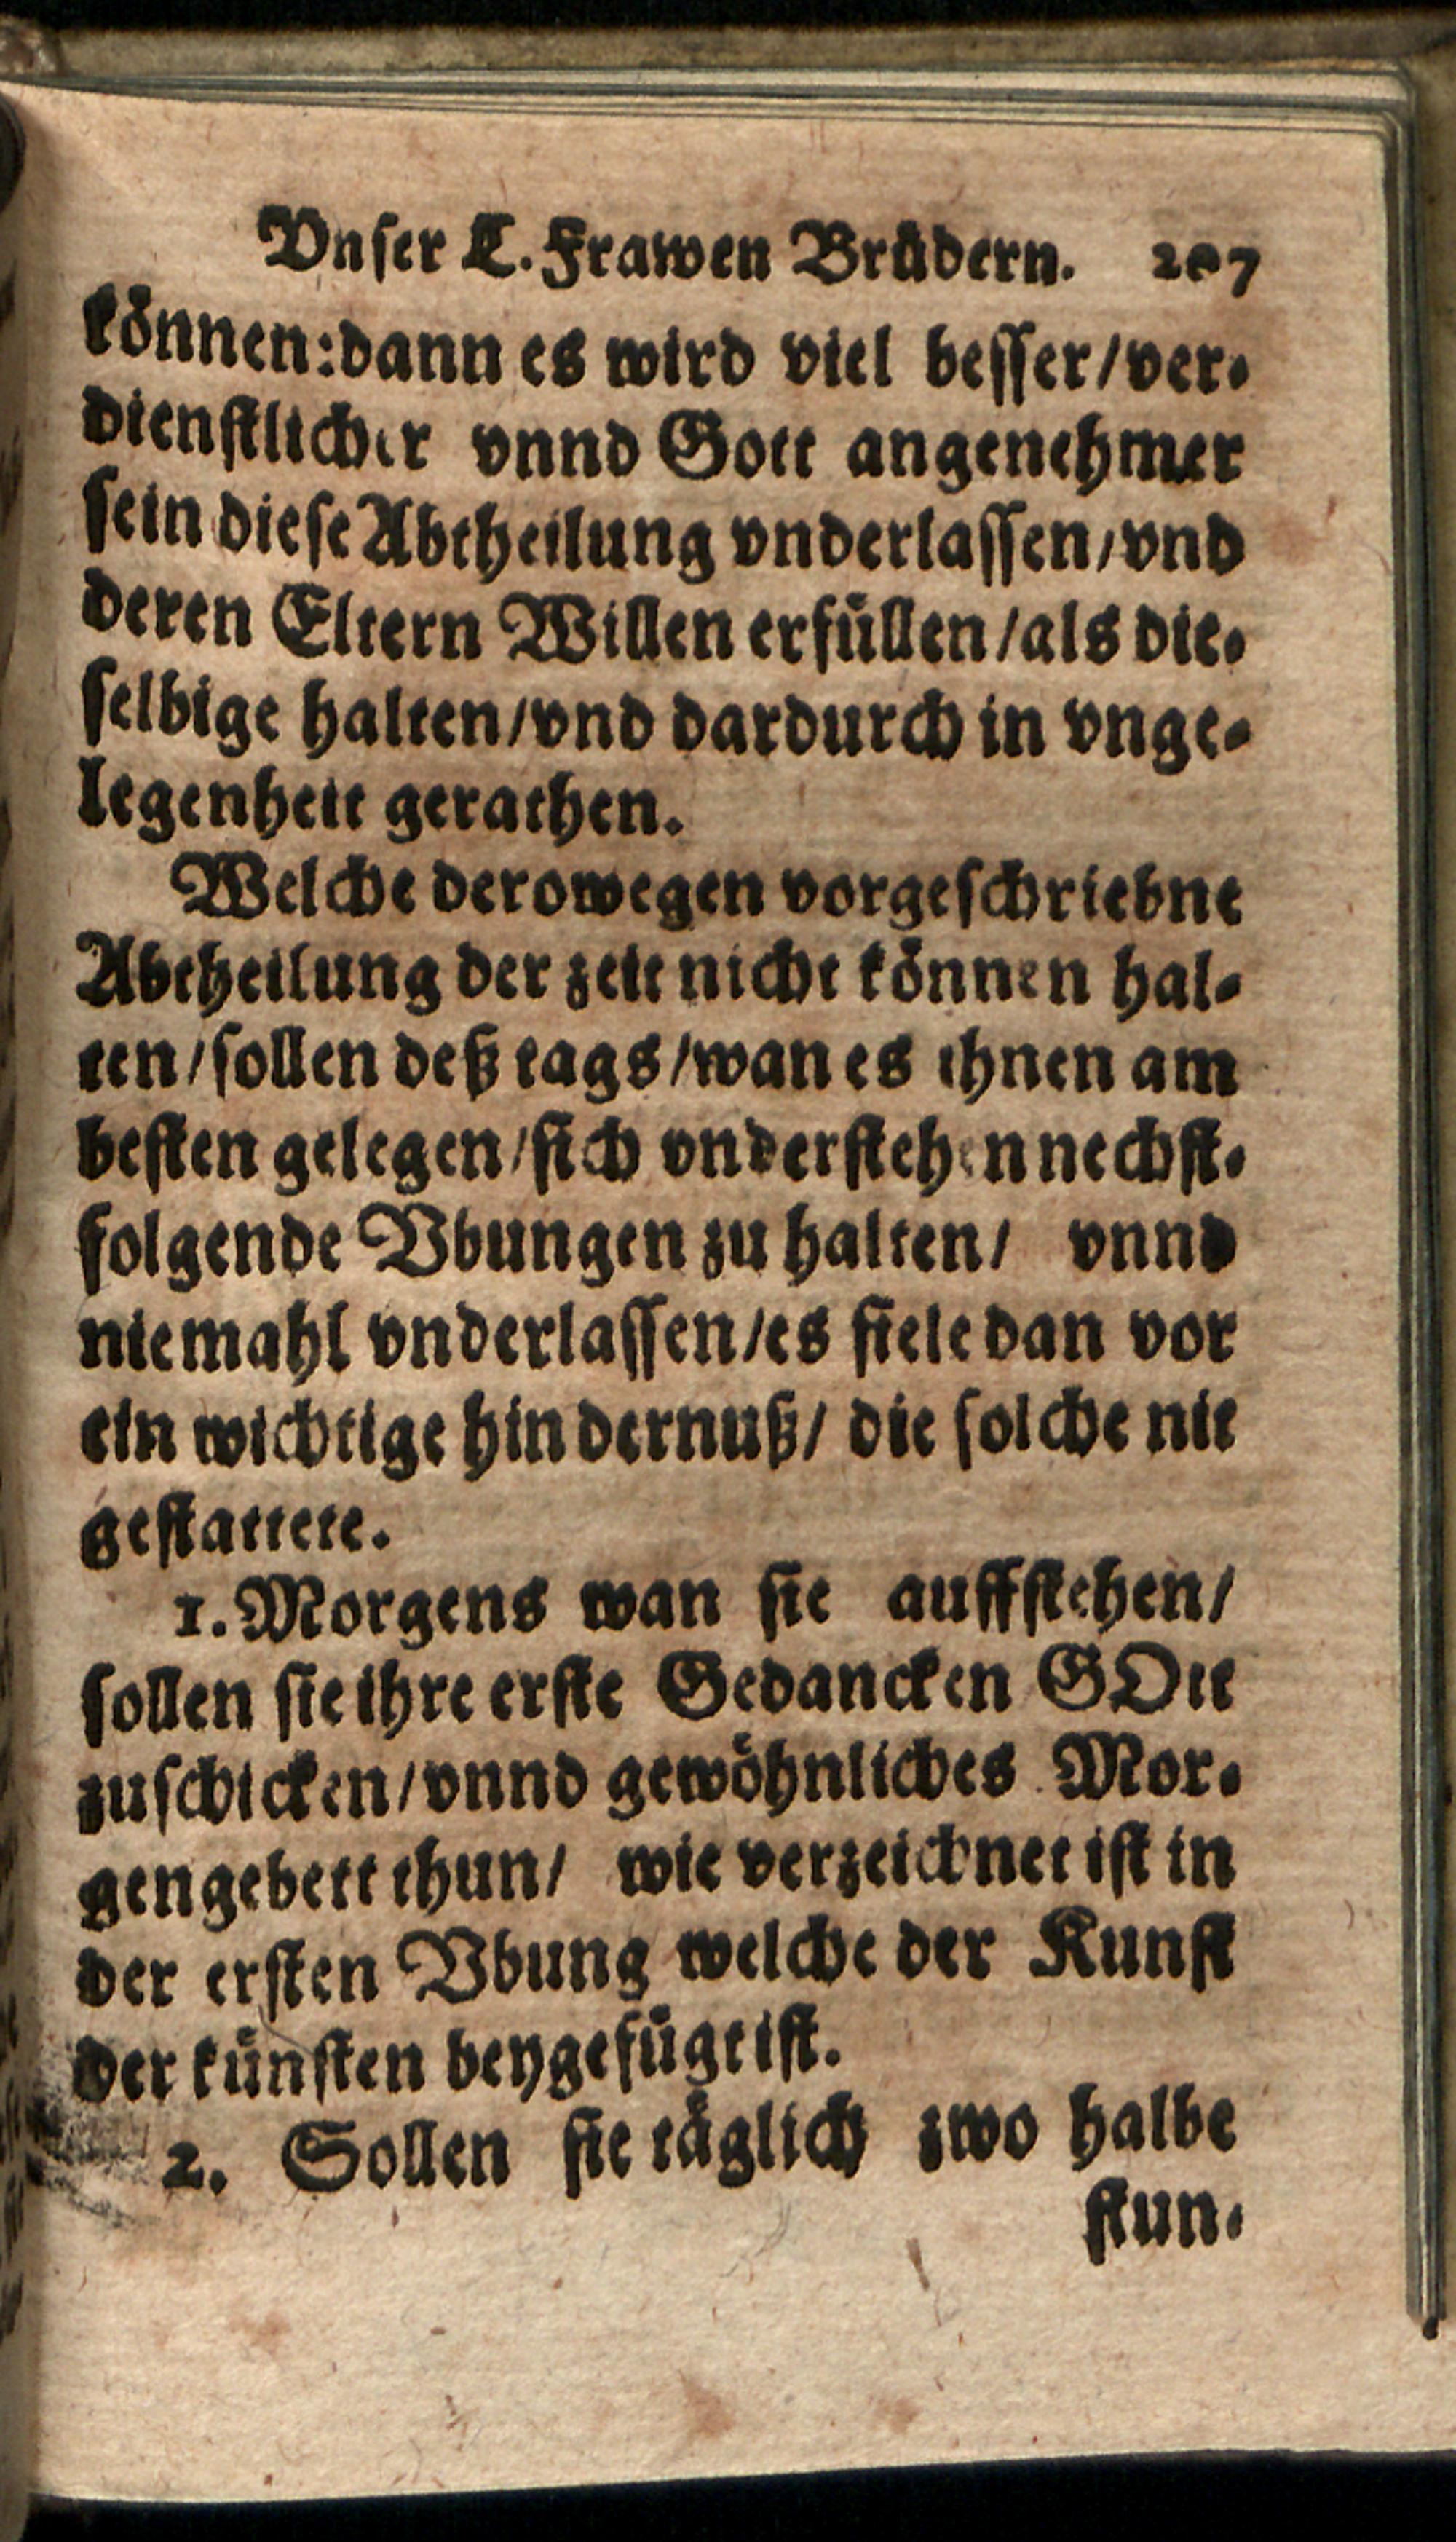 Vnser L. Frawen Brüdern. 207
können: dann es wird viel besser/ ver-
dienstlicher vnnd Gott angenehmer
sein diese Abtheilung vnderlassen/ vnd
deren Eltern Willen erfüllen/ als die-
selbige halten/ vnd dardurch in vnge-
legenheit gerathen.
Welche derowegen vorgeschriebne
Abtheilung der zeit nicht können hal-
ten/ sollen deß tags/ wan es ihnen am
besten gelegen/ sich vnderstehen nechst-
folgende Vbungen zu halten/ vnnd
niemahl vnderlassen/ es fiele dan vor
ein wichtige hindernuß/ die solche nit
gestattete.
1. Morgens wan sie auffstehen/
sollen sie ihre erste Gedancken GOtt
zuschicken/ vnnd gewöhnliches Mor-
gengebett thun/ wie verzeichnet ist in
der ersten Vbung welche der Kunst
der künsten beygefügt ist.
2. Sollen sie täglich zwo halbe
stun-